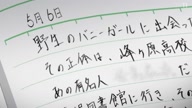 5月6日
野生のバニーガールに出会
その正体は、峰ヶ原高校
あの有名人
図書館に行き